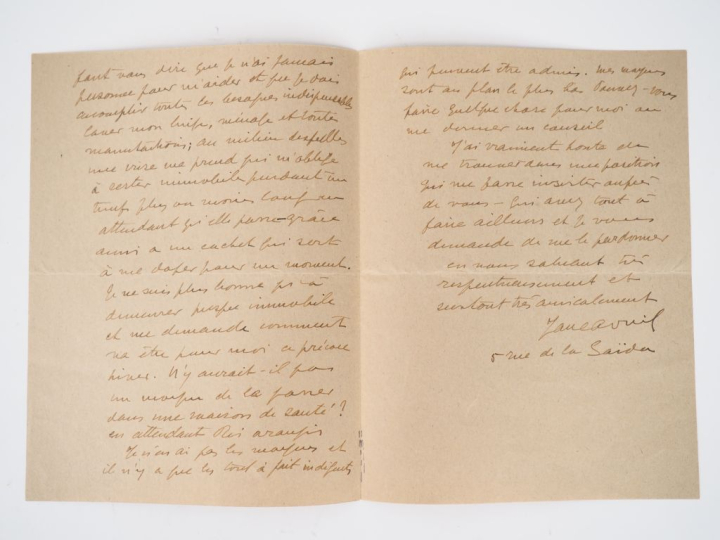 faut vous dire que je n'ai jamais
personne pour m'aider et que je dois
accomplir toutes les besognes indispensables
laver mon linge, ménage et toutes
manutations; au milieu desquelles
une crise me prend qui m'oblige
à rester immobile pendant un
temps plus ou moins long en
attendant qu'elle passe grâce
aussi à un cachet qui sert
à me doper pour un moment.
Je ne suis plus bonne qu'à
demeurer presque immobile
et me demande comment
va être pour moi ce précoce
hiver. N'y aurait-il pas
un moyen de le passer
dans une maison de santé?
en attendant
Je n'en ai pas les moyens et
il n'y a que les tout à fait indigents
qui peuvent être admis. mes moyens
sont au plan le plus bas Pouvez-vous
faire quelque chose pour moi ou
me donner un conseil
J'ai vraiment honte de
me trouver dans une position
qui me fasse insister auprès
de vous - qui avez tant à
faire ailleurs et je vous
demande de me le pardonner
en vous saluant très
respectueusement et
surtout très amicalement
Jane Avril
5 rue de la Saïda